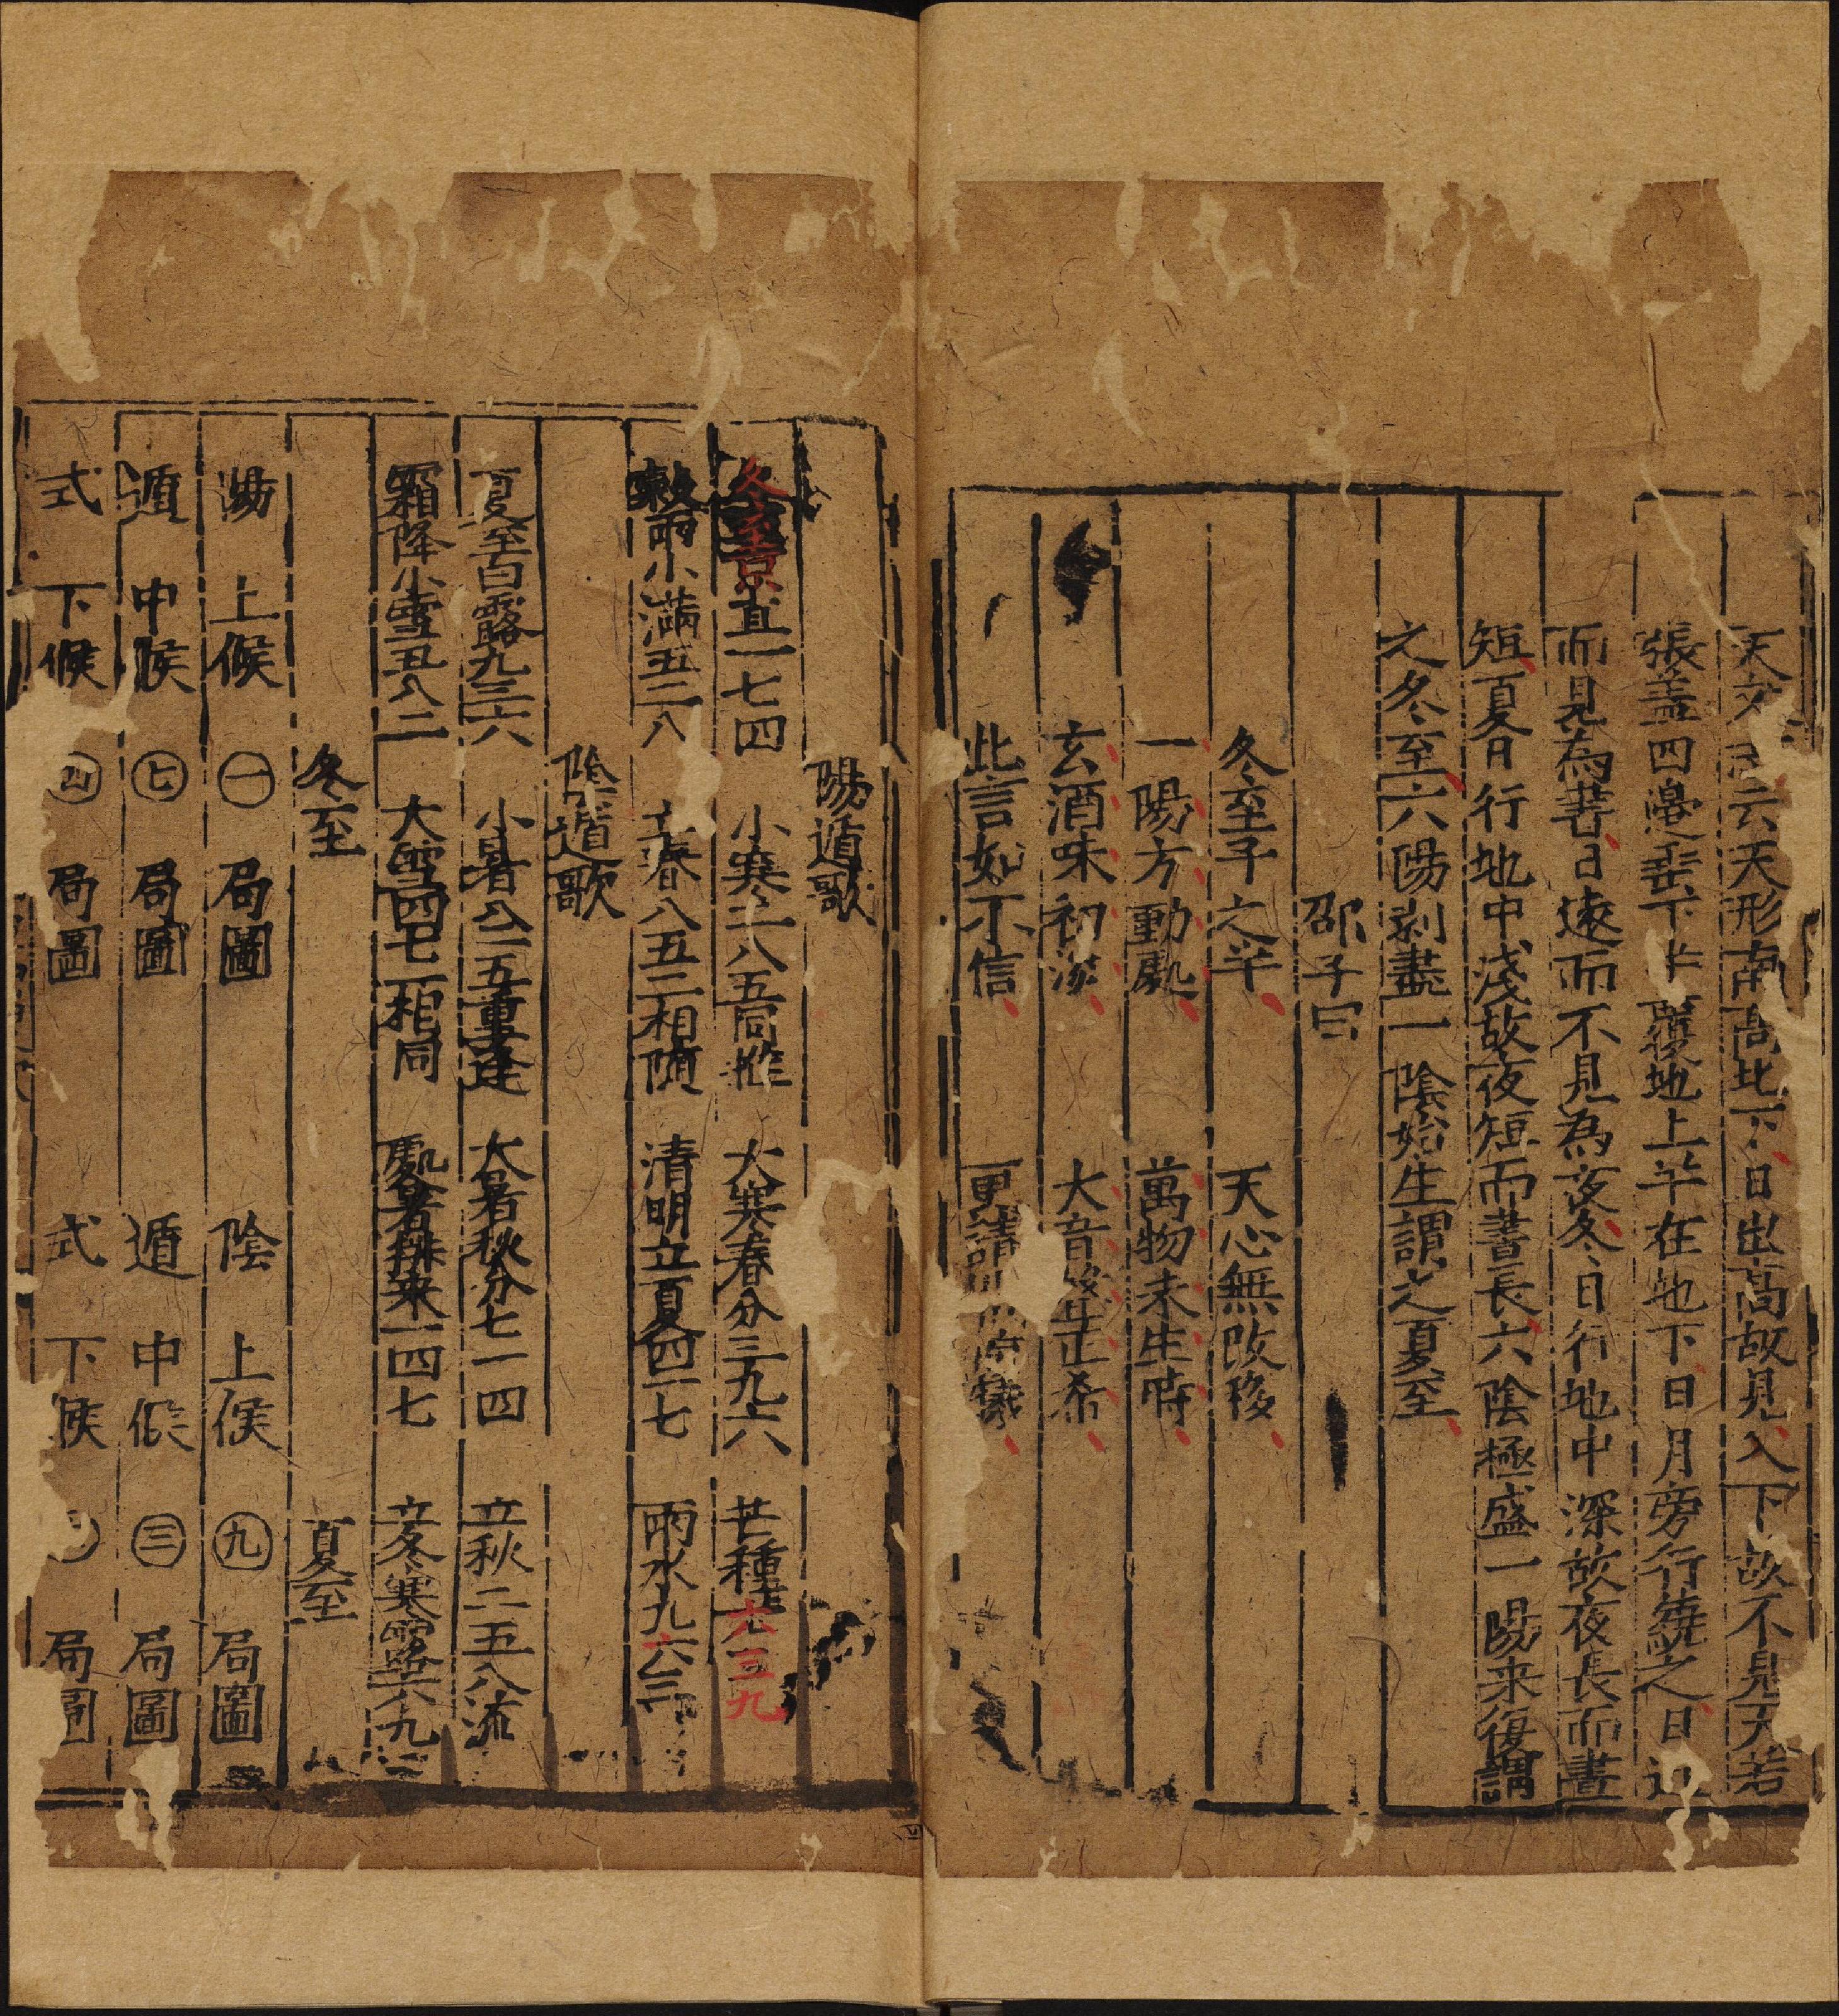 天文云天形南高北下日出高故見入下故不見天若
張蓋四邊垂下半覆地上半在地下日月旁行繞之日近
而見為晝日遠而不見為夜冬日行地中深故夜長而晝
短夏日行地中淺故夜短而晝長六陰極盛一陽来復謂
之冬至六陽剥盡一陰始生謂之夏至
邵子曰
冬至子之半 天心無改移
一陽方動處 萬物未生時
玄酒味初淡 大音聲正希
此言如不信 更請犧
陽遁歌
冬至京直一七四 小寒二八五同推 大寒春分三九六 芒種六三九
穀雨小滿五二八 立春八五二相隨 清明立夏四一七 雨水九六三
陰遁歌
夏至白露九三六 小暑八二五重逢 大暑秋分七一四 立秋二五八流
霜降小雪五八二 大雪四七一相同 處暑排来一四七 立冬寒露六九三
冬至 夏至
陽 上候 ㊀ 局圖 陰 上候 ㊈ 局圖
遁 中候 ㊆ 局圖 遁 中候 ㊂ 局圖
式 下候 ㊃ 局圖 式 下候 局圖